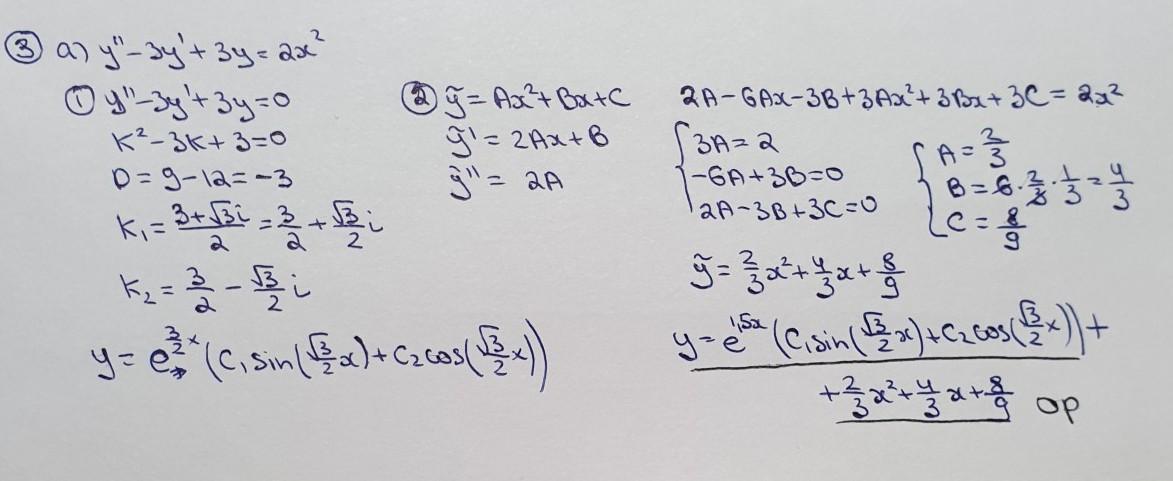 ③ a) y''-3y'+3y=2x²
① y''-3y'+3y=0
K²-3K+3=0
D=9-12=-3
K₁=(3+√3i)/2=3/2+√3/2 i
K₂=3/2-√3/2 i
y=e^(3/2 x)(C₁sin(√3/2 x)+C₂cos(√3/2 x))
② ỹ=Ax²+Bx+C
ỹ'=2Ax+B
ỹ''=2A
2A-6Ax-3B+3Ax²+3Bx+3C=2x²
{3A=2
-6A+3B=0
2A-3B+3C=0
{A=2/3
B=6·2/3·1/3=4/3
C=8/9
ỹ=2/3x²+4/3x+8/9
y=e^(1,5x)(C₁sin(√3/2 x)+C₂cos(√3/2 x))+
+2/3x²+4/3x+8/9 ОР